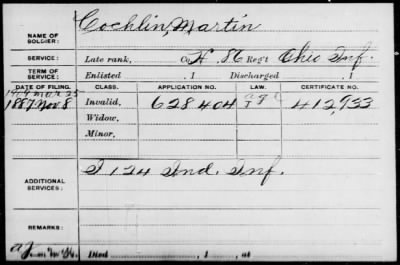 NAME OF SOLDIER: Cochlin, Martin
SERVICE: Late rank, Co. H, 86 Reg't Ohio Inf.
TERM OF SERVICE: Enlisted , 1 Discharged , 1
DATE OF FILING. CLASS. APPLICATION NO. LAW. CERTIFICATE NO.
1887 Nov 8 Invalid, 628404 412,933
Widow,
Minor,
ADDITIONAL SERVICES: I 124 Ind. Inf.
REMARKS:
Died , 1 , at